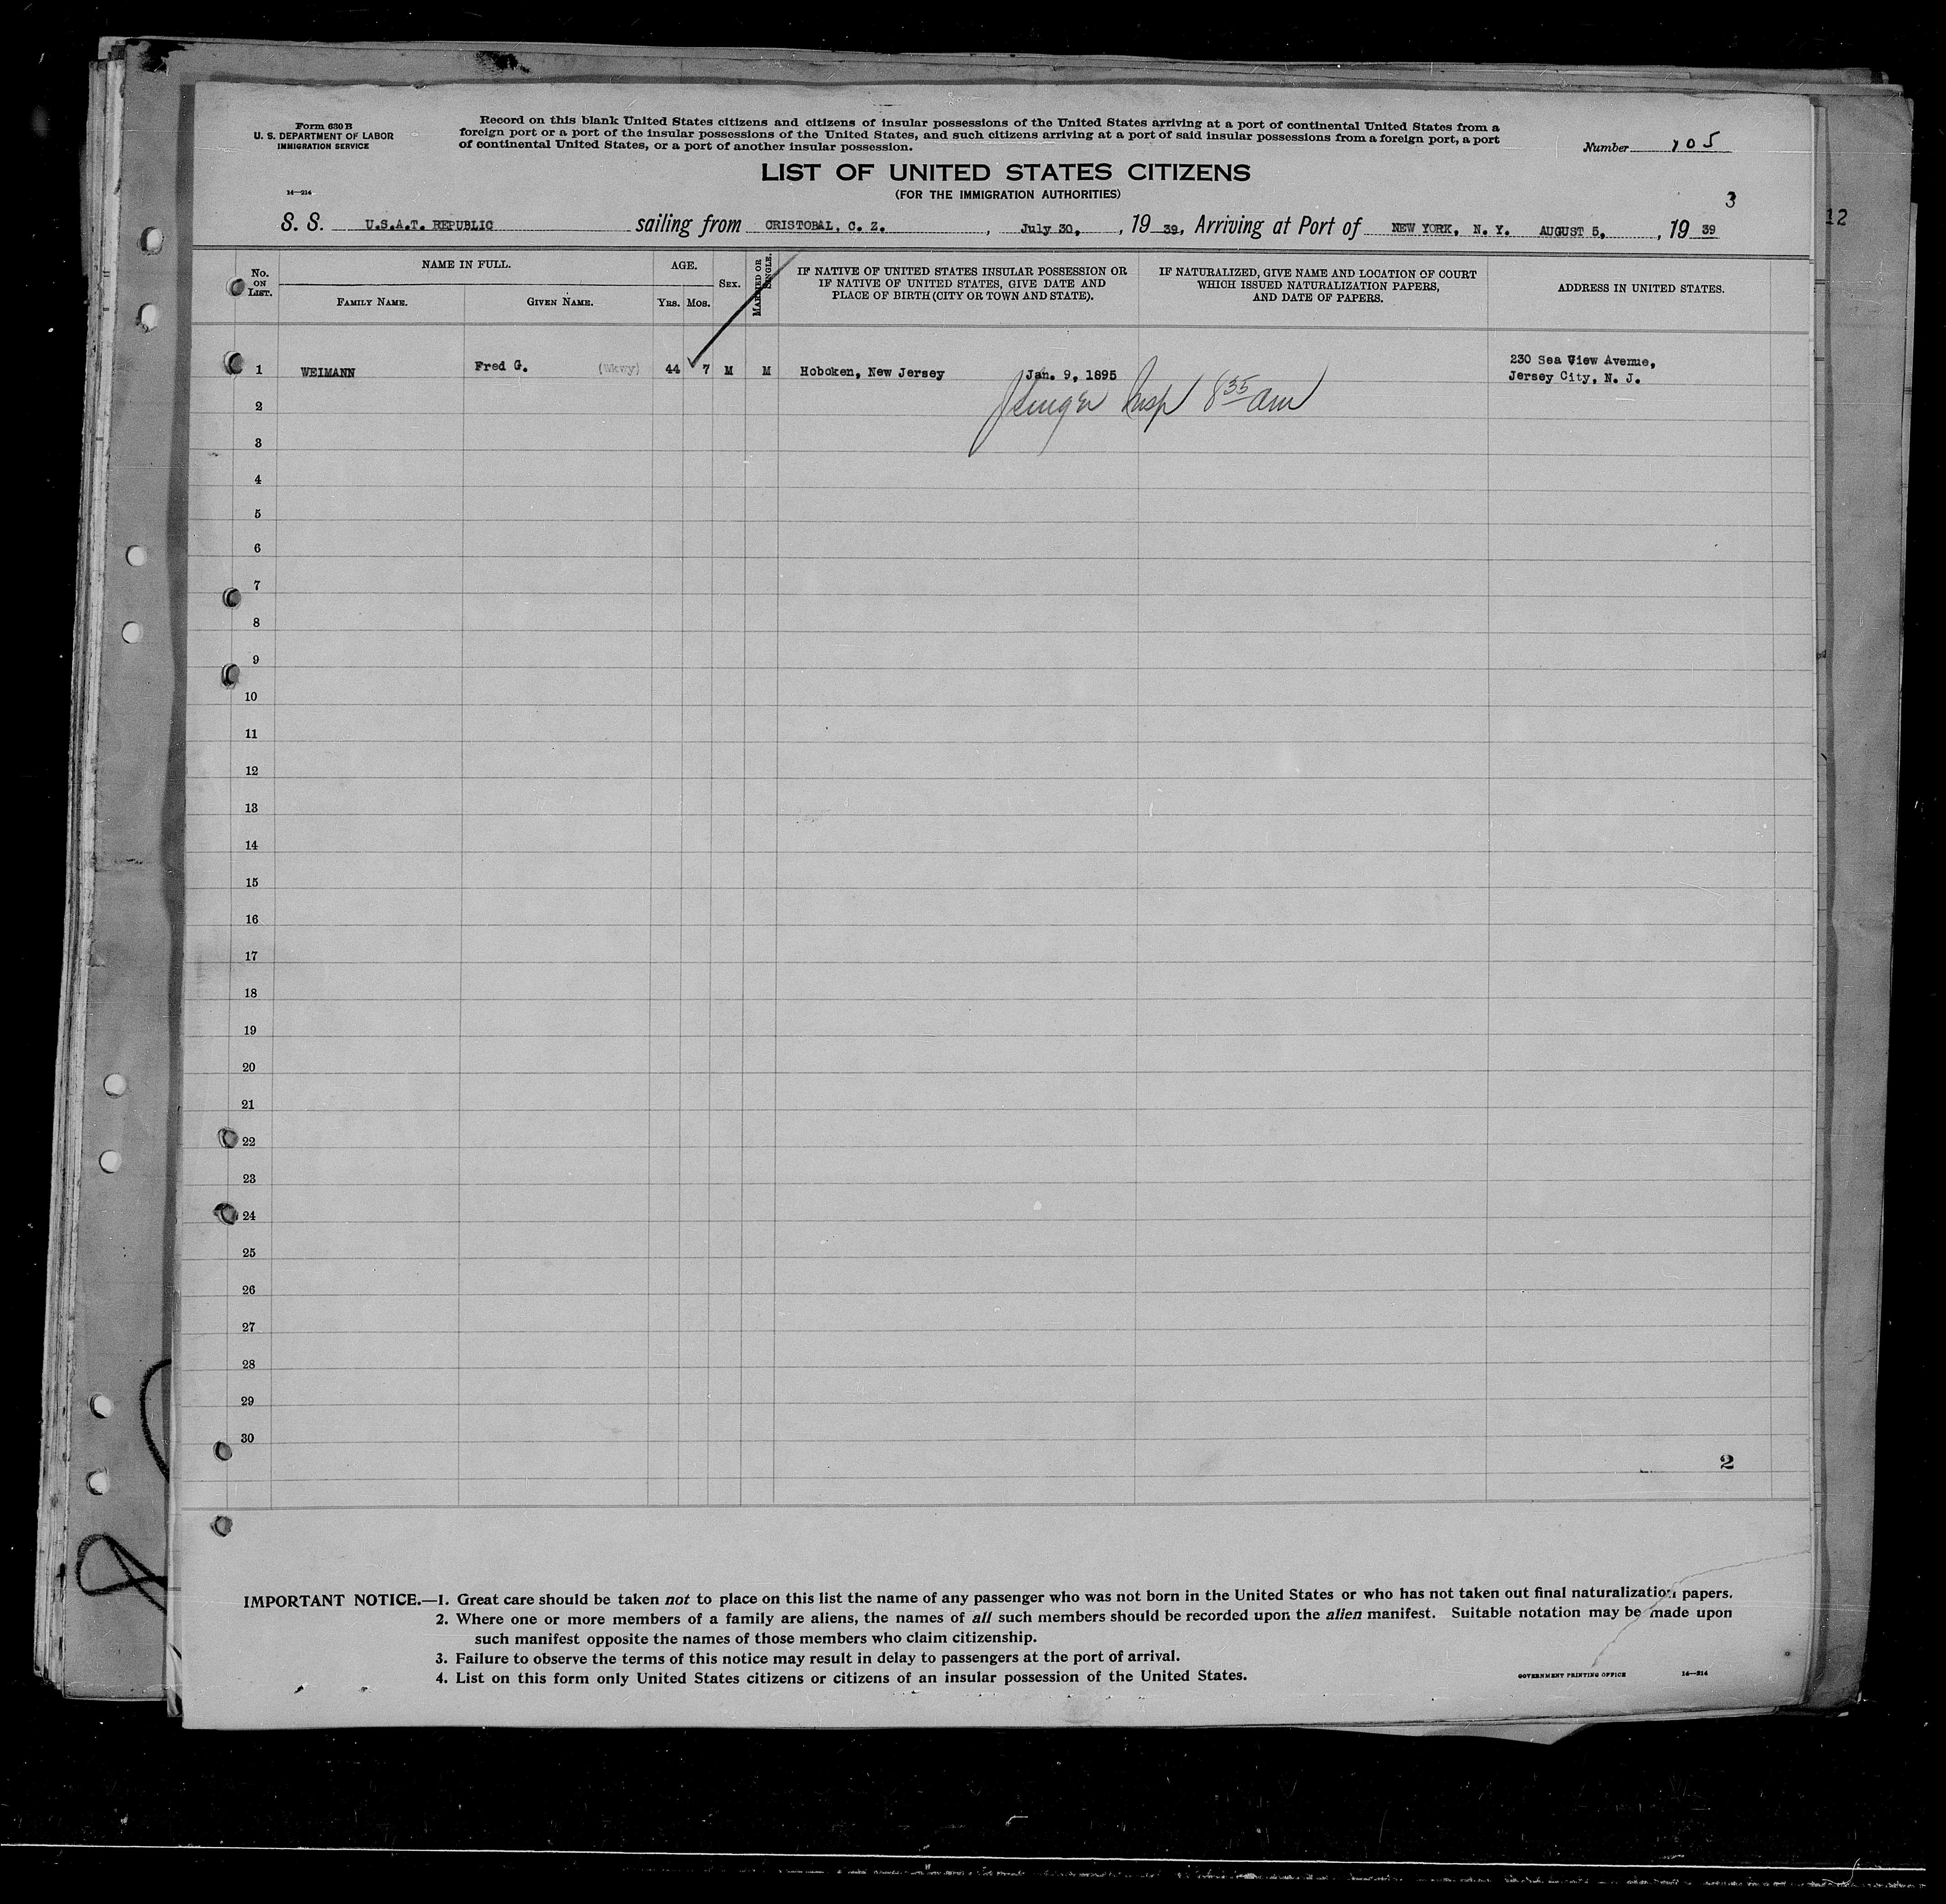 Form 630 B
U. S. DEPARTMENT OF LABOR
IMMIGRATION SERVICE
14—214
Record on this blank United States citizens and citizens of insular possessions of the United States arriving at a port of continental United States from a
foreign port or a port of the insular possessions of the United States, and such citizens arriving at a port of said insular possessions from a foreign port, a port
of continental United States, or a port of another insular possession.
Number 105
LIST OF UNITED STATES CITIZENS
(FOR THE IMMIGRATION AUTHORITIES)
3
S. S. U.S.A.T. REPUBLIC sailing from CRISTOBAL, C. Z. , July 30, , 19 39, Arriving at Port of NEW YORK, N. Y. AUGUST 5, , 19 39
12
No. ON LIST.
NAME IN FULL.
FAMILY NAME.
GIVEN NAME.
AGE.
YRS.
MOS.
SEX.
MARRIED OR SINGLE.
IF NATIVE OF UNITED STATES INSULAR POSSESSION OR
IF NATIVE OF UNITED STATES, GIVE DATE AND
PLACE OF BIRTH (CITY OR TOWN AND STATE).
IF NATURALIZED, GIVE NAME AND LOCATION OF COURT
WHICH ISSUED NATURALIZATION PAPERS,
AND DATE OF PAPERS.
ADDRESS IN UNITED STATES.
1 WEIMANN Fred G. (Wkwy) 44 7 M M Hoboken, New Jersey Jan. 9, 1895 230 Sea View Avenue,
Jersey City, N. J.
Insp 8 35 am
2
3
4
5
6
7
8
9
10
11
12
13
14
15
16
17
18
19
20
21
22
23
24
25
26
27
28
29
30
2
IMPORTANT NOTICE.—1. Great care should be taken not to place on this list the name of any passenger who was not born in the United States or who has not taken out final naturalization papers.
2. Where one or more members of a family are aliens, the names of all such members should be recorded upon the alien manifest. Suitable notation may be made upon
such manifest opposite the names of those members who claim citizenship.
3. Failure to observe the terms of this notice may result in delay to passengers at the port of arrival.
4. List on this form only United States citizens or citizens of an insular possession of the United States.
GOVERNMENT PRINTING OFFICE 14—214